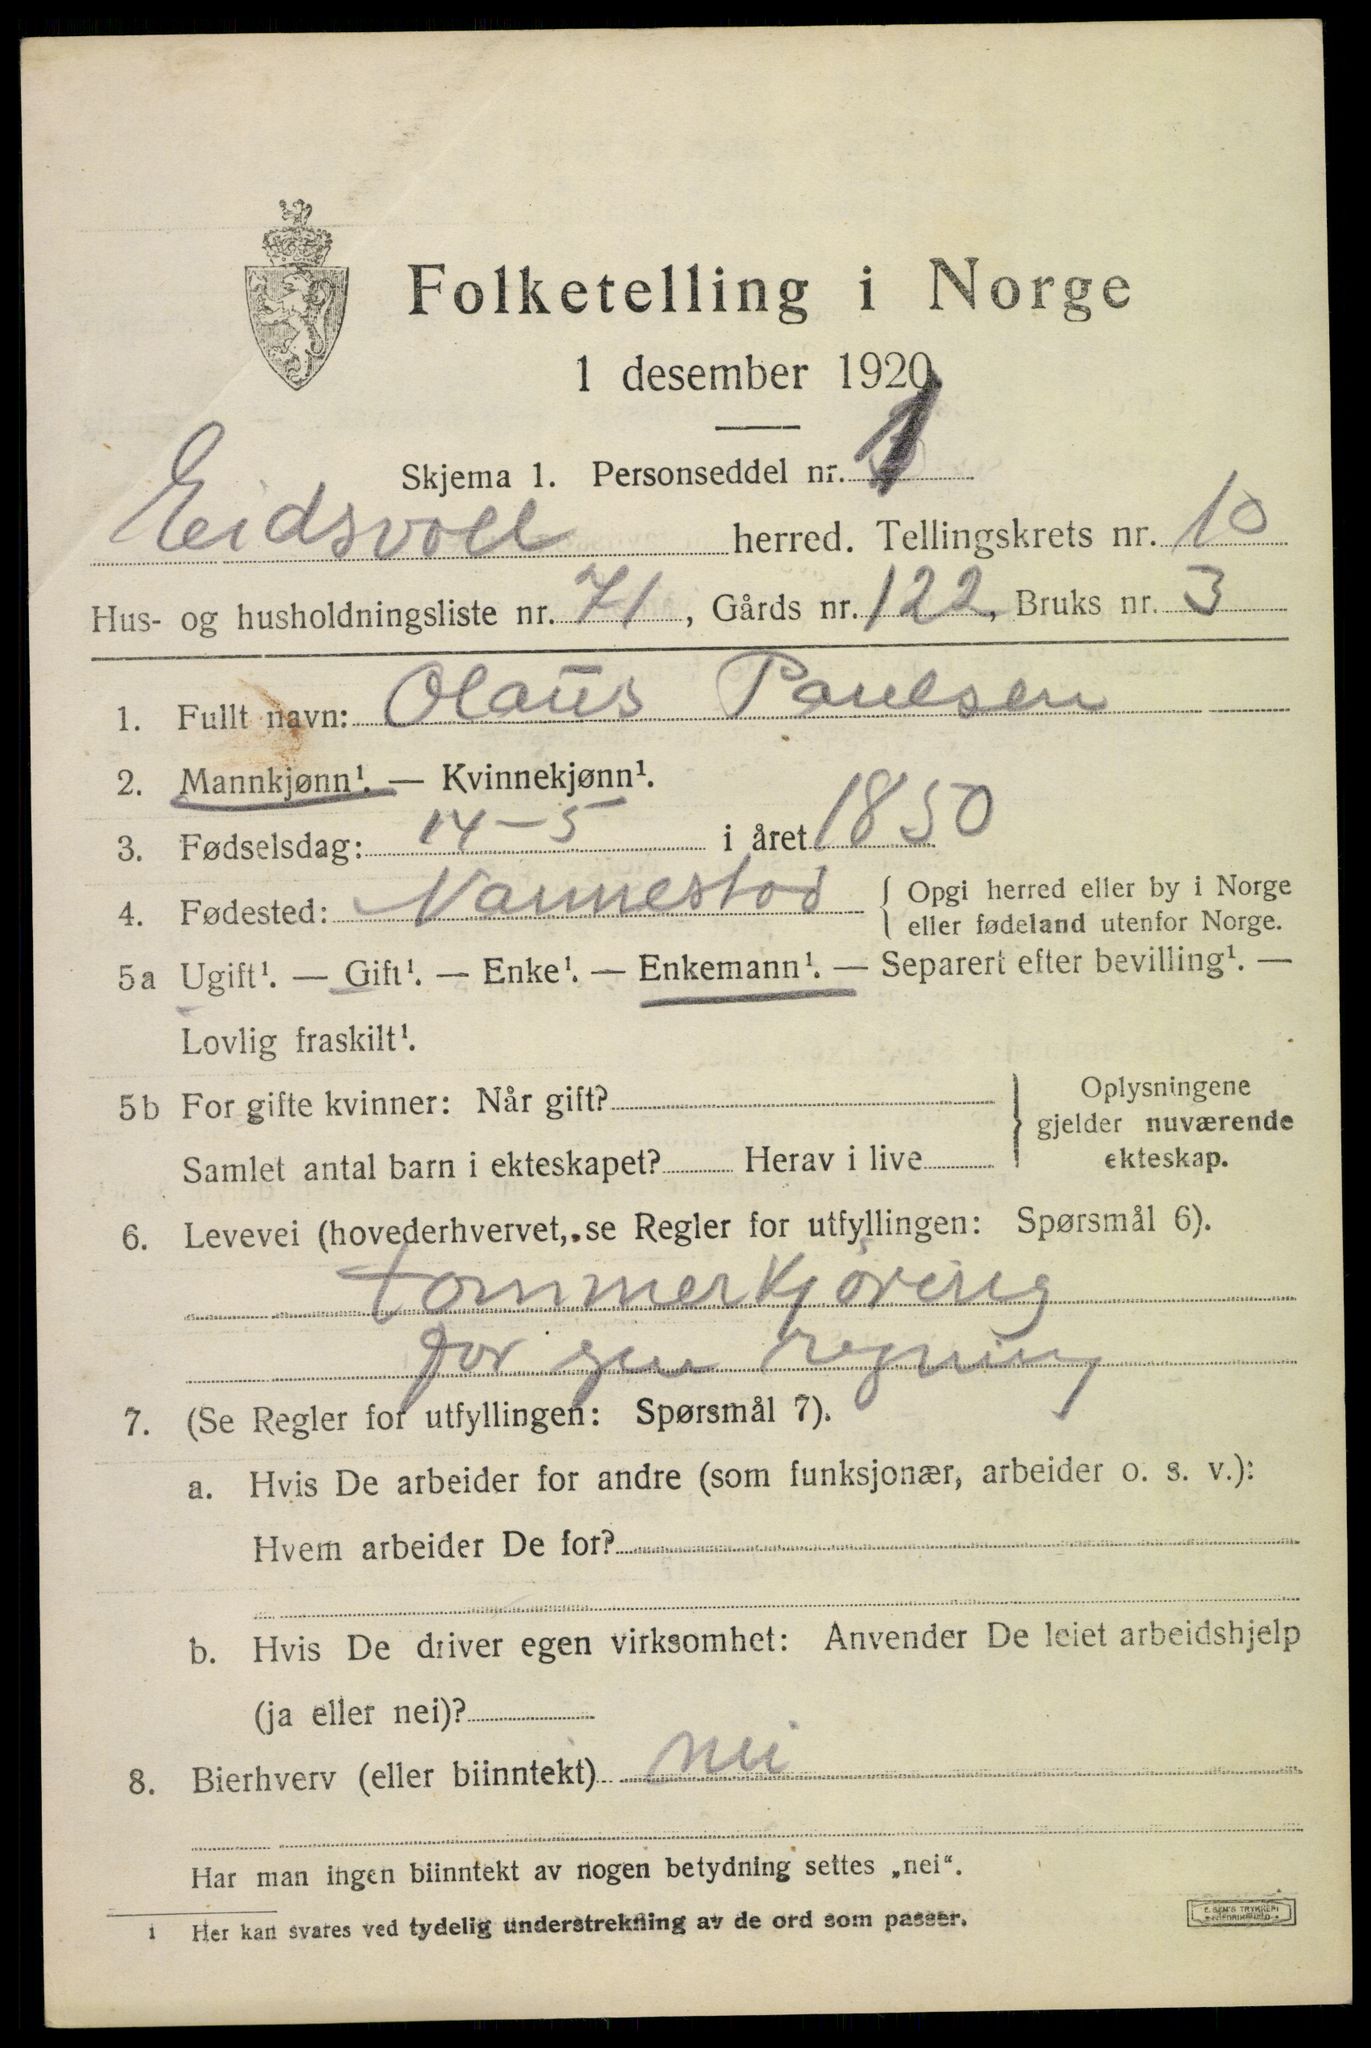 Folketelling i Norge
1 desember 1920
Skjema 1. Personseddel nr. 1
Eidsvoll herred. Tellingskrets nr. 10
Hus- og husholdningsliste nr. 71, Gårds nr. 122, Bruks nr. 3
1. Fullt navn: Olaus Paulsen
2. Mannkjønn¹. — Kvinnekjønn¹.
3. Fødselsdag: 14-5 i året 1850
4. Fødested: Nannestad { Opgi herred eller by i Norge
eller fødeland utenfor Norge.
5a Ugift¹. — Gift¹. — Enke¹. — Enkemann¹. — Separert efter bevilling¹. —
Lovlig fraskilt¹.
5b For gifte kvinner: Når gift?
Samlet antal barn i ekteskapet? Herav i live
} Oplysningene
gjelder nuværende
ekteskap.
6. Levevei (hovederhvervet, se Regler for utfyllingen: Spørsmål 6).
tømmerkjøring
for egen regning
7. (Se Regler for utfyllingen: Spørsmål 7).
a. Hvis De arbeider for andre (som funksjonær, arbeider o. s. v.):
Hvem arbeider De for?
b. Hvis De driver egen virksomhet: Anvender De leiet arbeidshjelp
(ja eller nei)?
8. Bierhverv (eller biinntekt) nei
Har man ingen biinntekt av nogen betydning settes „nei“.
1 Her kan svares ved tydelig understrekning av de ord som passer.